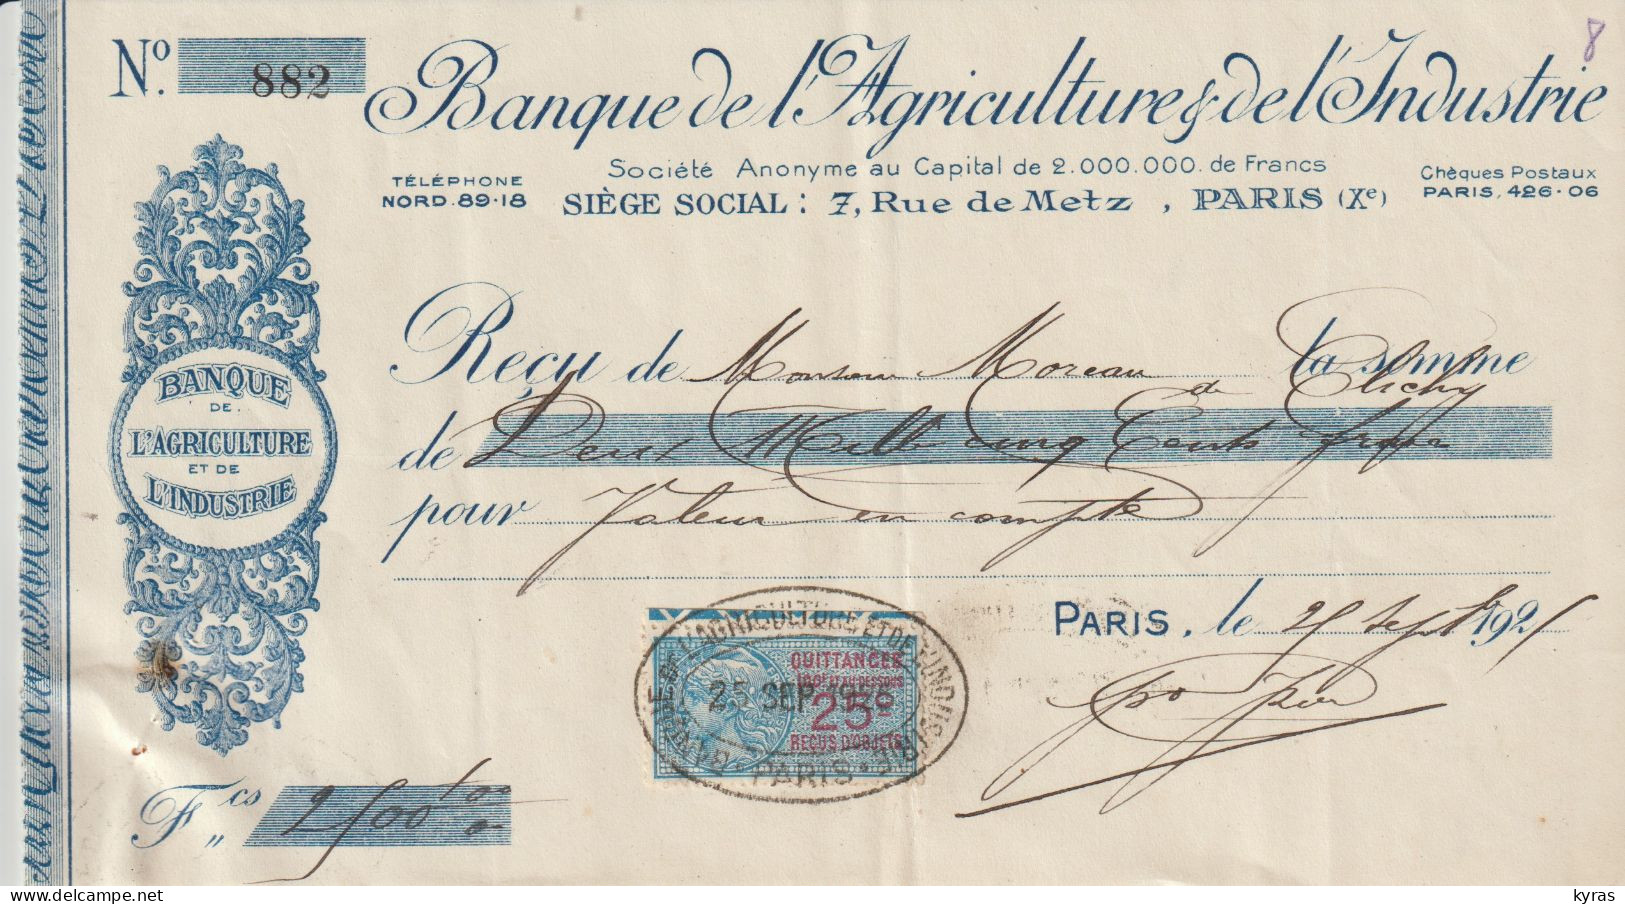 8
Nº. 882
Banque de l'Agriculture & de l'Industrie
Société Anonyme au Capital de 2.000.000. de Francs
TÉLÉPHONE
NORD. 89-18
SIÈGE SOCIAL : 7, Rue de Metz , PARIS (Xe)
Chèques Postaux
PARIS, 426-06
BANQUE
DE
L'AGRICULTURE
ET DE
L'INDUSTRIE
Reçu de Monsieur Moreau la somme
de Clichy
de Deux Mille cinq Cents francs
pour Valeur en compte
PARIS, le 25 Sept 1925
BANQUE DE L'AGRICULTURE ET DE L'INDUSTRIE
QUITTANCES
100F ET AU DESSOUS
25 SEP
25c
REÇUS D'OBJETS
PARIS
Fcs 2500
kyras